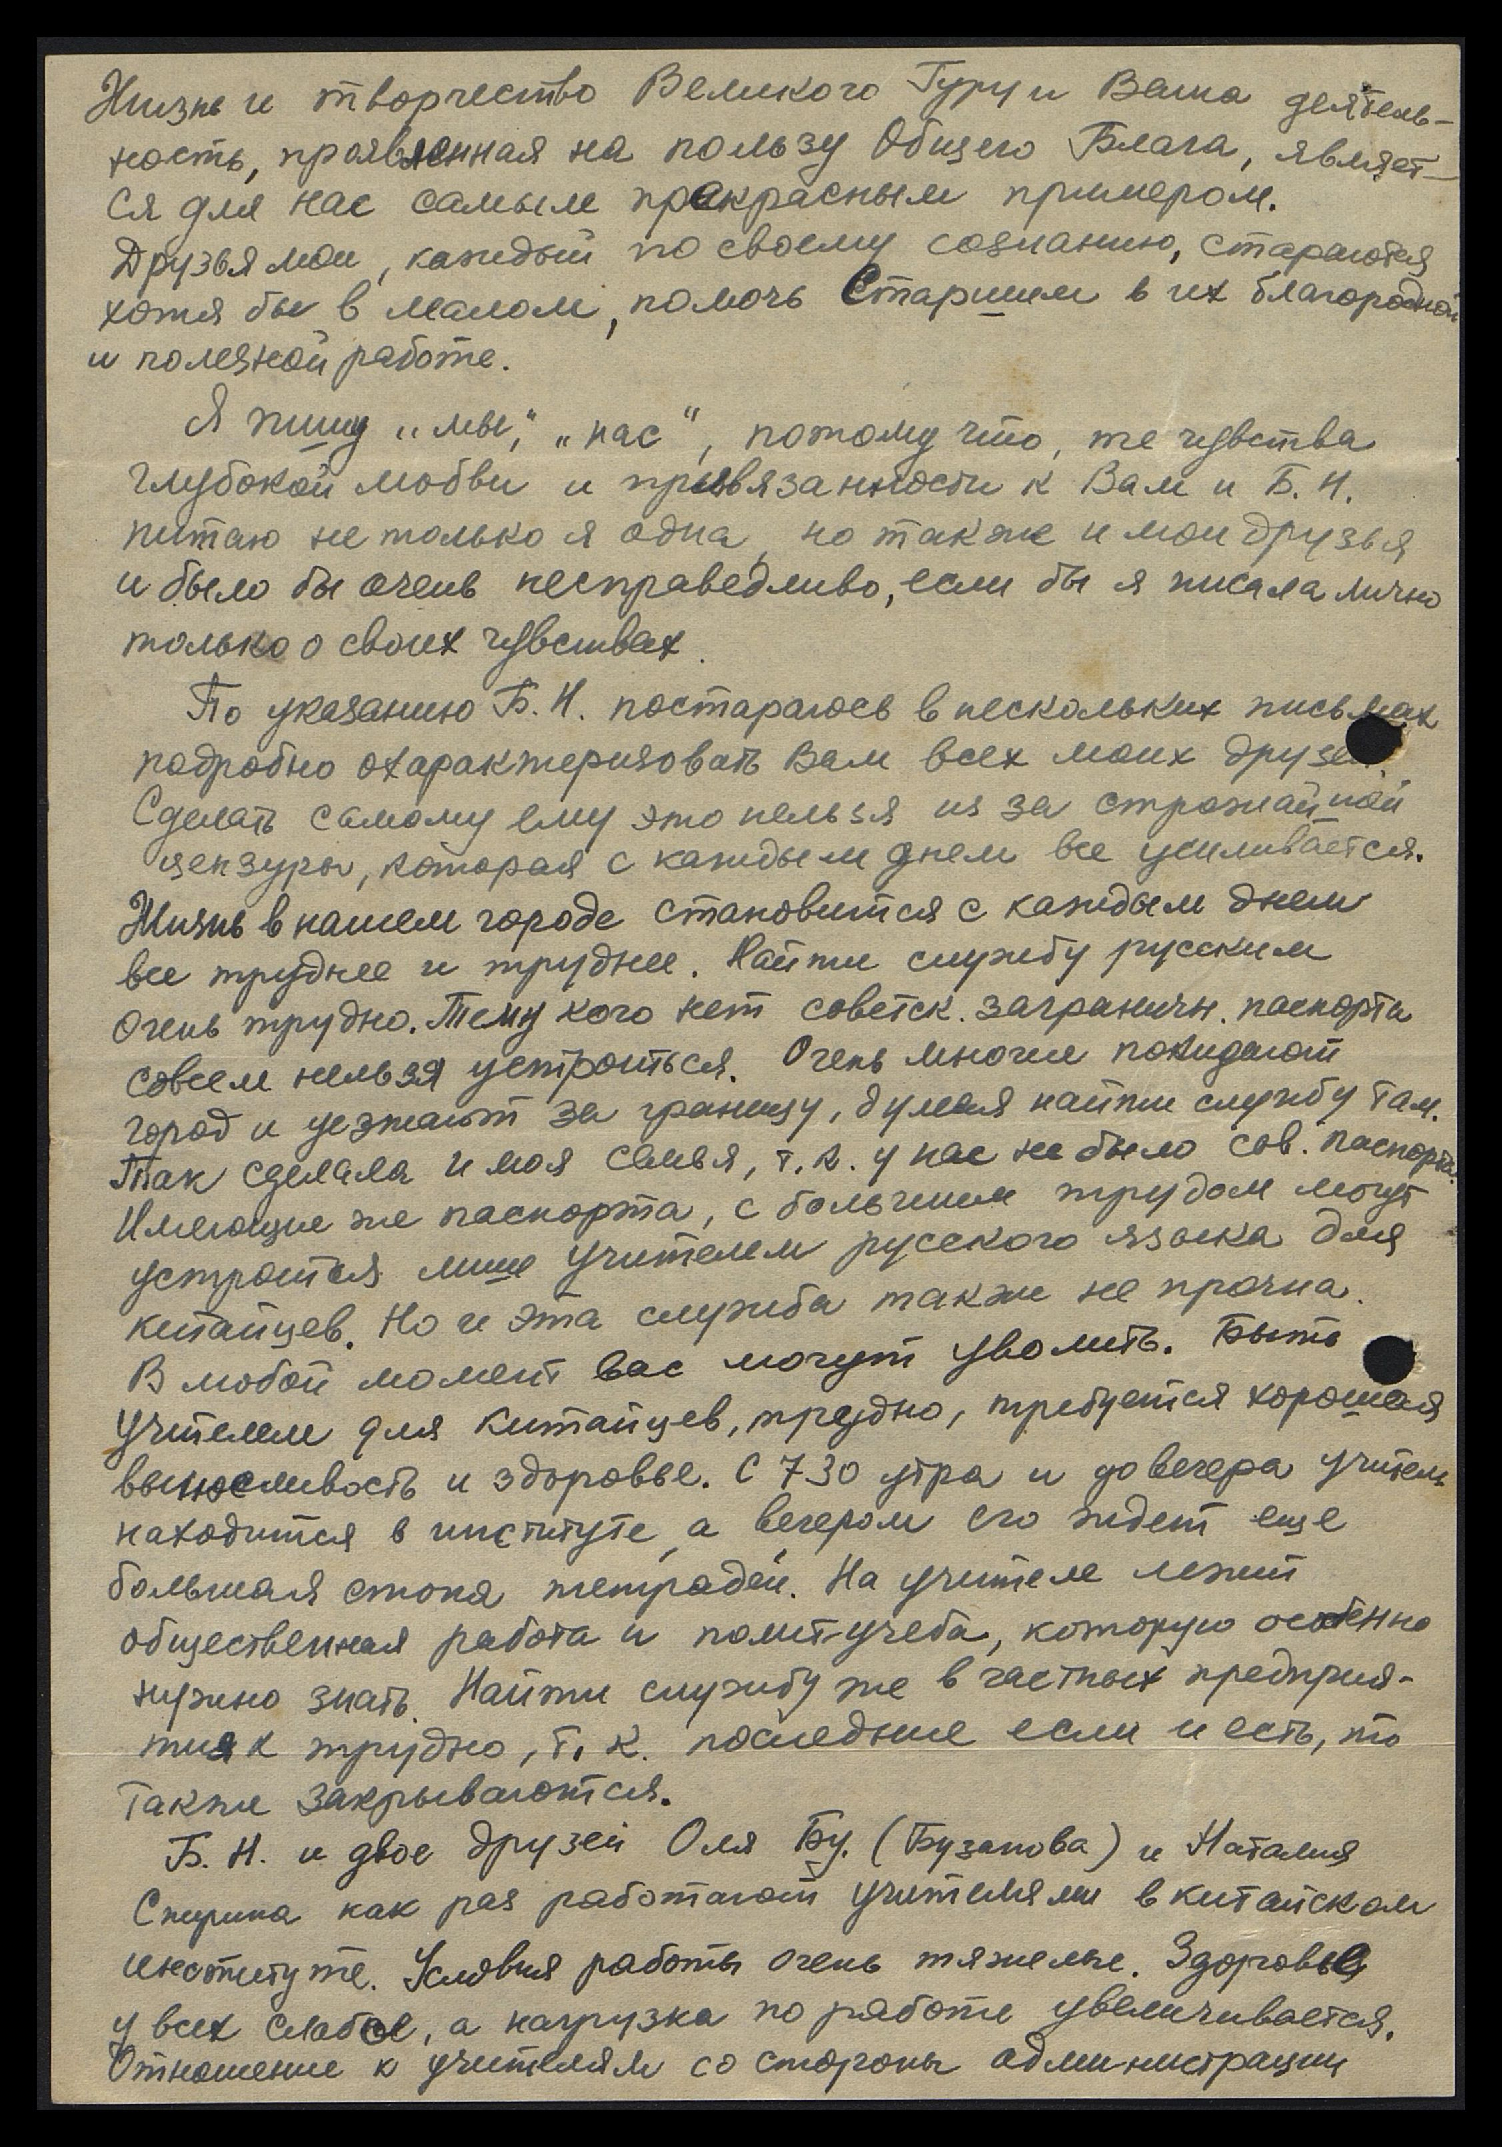 Жизнь и творчество Великого Гуру и Ваша деятель-
ность, проявленная на пользу Общего Блага, являет-
ся для нас самым прекрасным примером.
Друзья мои, каждый по своему сознанию, стараются
хотя бы в малом, помочь Старшим в их благородной
и полезной работе.
Я пишу „мы", „нас", потому что, те чувства
глубокой любви и привязанности к Вам и Б. Н.
питаю не только я одна, но также и мои друзья
и было бы очень несправедливо, если бы я писала лично
только о своих чувствах.
По указанию Б. Н. постараюсь в нескольких письмах
подробно охарактеризовать Вам всех моих друзей.
Сделать самому ему это нельзя из за строжайшей
цензуры, которая с каждым днем все усиливается.
Жизнь в нашем городе становится с каждым днем
все труднее и труднее. Найти службу русским
очень трудно. Тему кого нет советск. заграничн. паспорта
совсем нельзя устроиться. Очень многие покидают
город и уезжают за границу, думая найти службу там.
Так сделала и моя семья, т. к. у нас не было сов. паспорта.
Имеющие же паспорта, с большим трудом могут
устроится лише учителем русского языка для
китайцев. Но и эта служба также не прочна.
В любой момент вас могут уволить. Быть
учителем для китайцев, трудно, требуется хорошая
выносливость и здоровье. С 7 30 утра и до вечера учитель
находится в институте, а вечером его ждет еще
большая стопа тетрадей. На учителе лежит
общественная работа и полит-учеба, которую особенно
нужно знать. Найти службу же в частных предприя-
тиях трудно, т. к. последние если и есть, то
также закрываются.
Б. Н. и двое друзей Оля Бу. (Бузанова) и Наталия
Спирина как раз работают учителями в китайском
институте. Условия работы очень тяжелые. Здоровье
у всех слабое, а нагрузка по работе увеличивается.
Отношение к учителям со стороны администрации